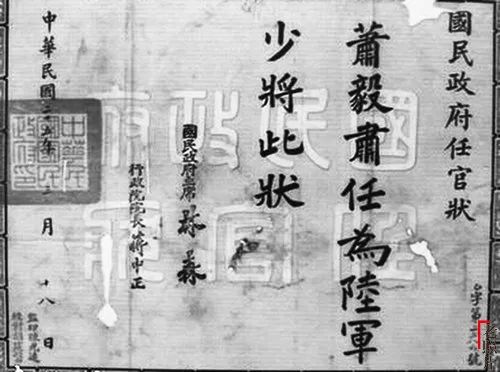 國民政府任官狀
蕭毅肅任為陸軍
少將此狀
國民政府主席 林森
行政院院長 蔣中正
中華民國二十五年 二月 十八日
國民政府
任官狀